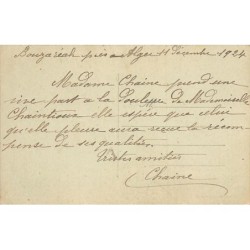 Bouzaréah près Alger 11 Décembre 1924
Madame Chaine prend une
vive part a la douleur de Mademoiselle
elle espère que celui
qu'elle pleure aura reçu la récom
pense de ses qualités.
Tristes amitiés
Chaine